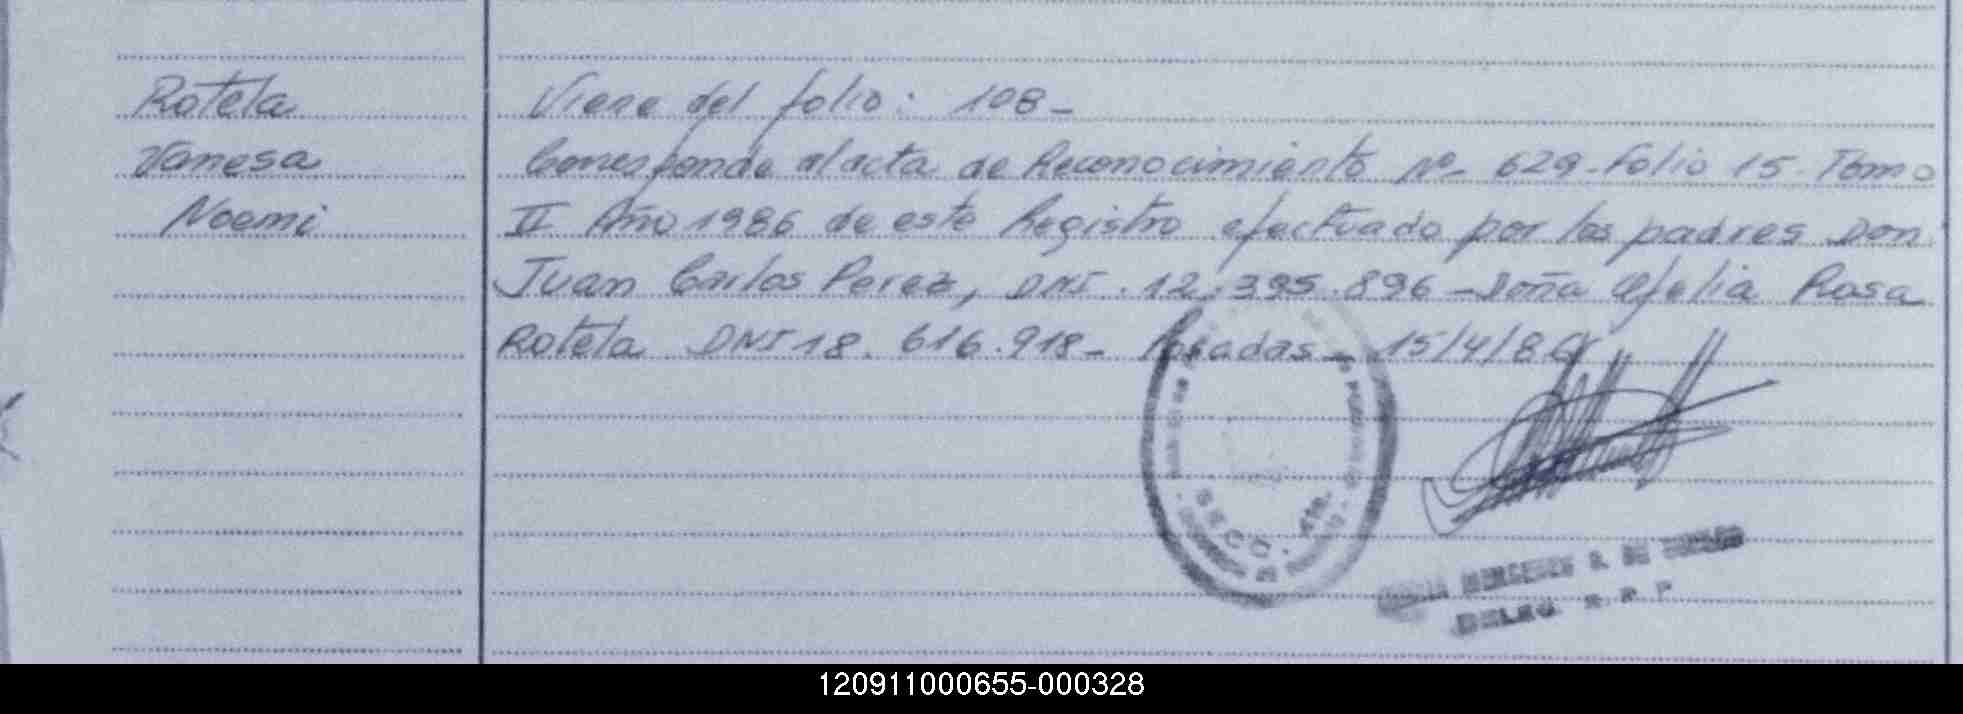 Rotela
Vanesa
Noemi
Viene del folio: 108-
Corresponde al acta de Reconocimiento Nº 629-Folio 15-Tomo
II Año 1986 de este Registro efectuado por los padres Don
Juan Carlos Perez, DNI. 12.395.896-Doña Ofelia Rosa
Rotela DNI 18.616.918- Posadas- 15/4/86
SECC. 4ta.
MERCEDES R. DE
DELEG. R. P. P
120911000655-000328